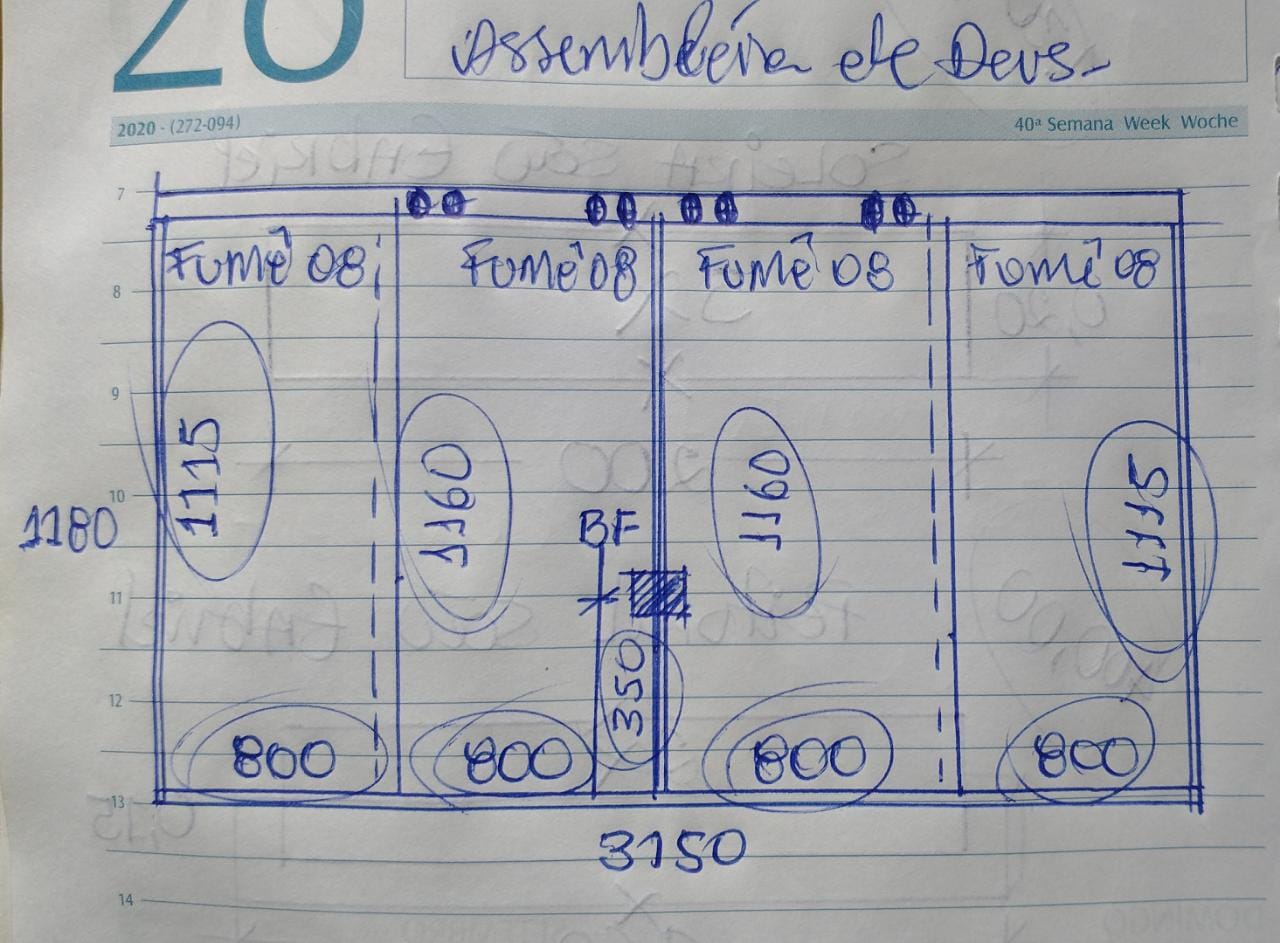 20
Assembléia de Deus
2020 - (272-094)
40ª Semana Week Woche
7
Fumê 08 Fumê 08 Fumê 08 Fumê 08
8
9
1115 1160 1160 1115
10
1180
BF
11
350
12
800 800 800 800
13
3150
14